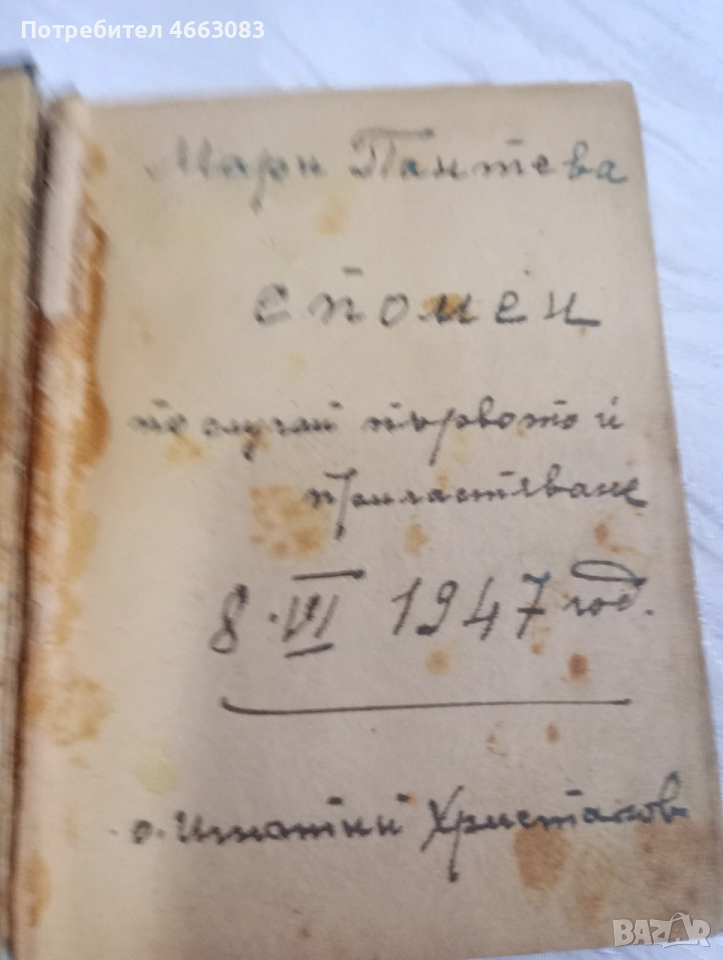 Потребител 4663083
Мари Пантева
спомен
по случай първото ѝ
причастяване
8. VI 1947 год.
о. Игнатий Христаков
BAZAR